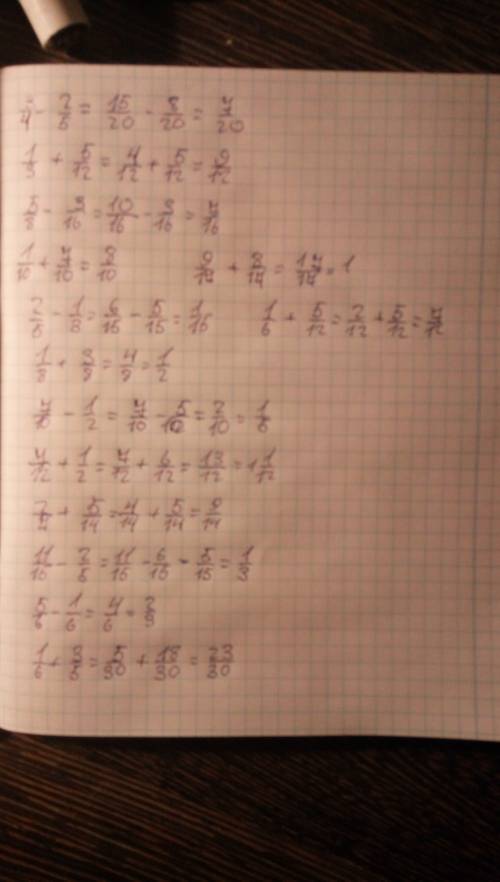 3/4 - 2/5 = 15/20 - 8/20 = 7/20
1/3 + 5/12 = 4/12 + 5/12 = 9/12
5/8 - 3/16 = 10/16 - 3/16 = 7/16
1/10 + 7/10 = 8/10 9/14 + 8/14 = 17/14 = 1
2/5 - 1/3 = 6/15 - 5/15 = 1/15 1/6 + 5/12 = 2/12 + 5/12 = 7/12
1/8 + 3/8 = 4/8 = 1/2
7/10 - 1/2 = 7/10 - 5/10 = 2/10 = 1/5
7/12 + 1/2 = 7/12 + 6/12 = 13/12 = 1 1/12
2/7 + 5/14 = 4/14 + 5/14 = 9/14
11/15 - 2/5 = 11/15 - 6/15 = 5/15 = 1/3
5/6 - 1/6 = 4/6 = 2/3
1/6 + 3/5 = 5/30 + 18/30 = 23/30